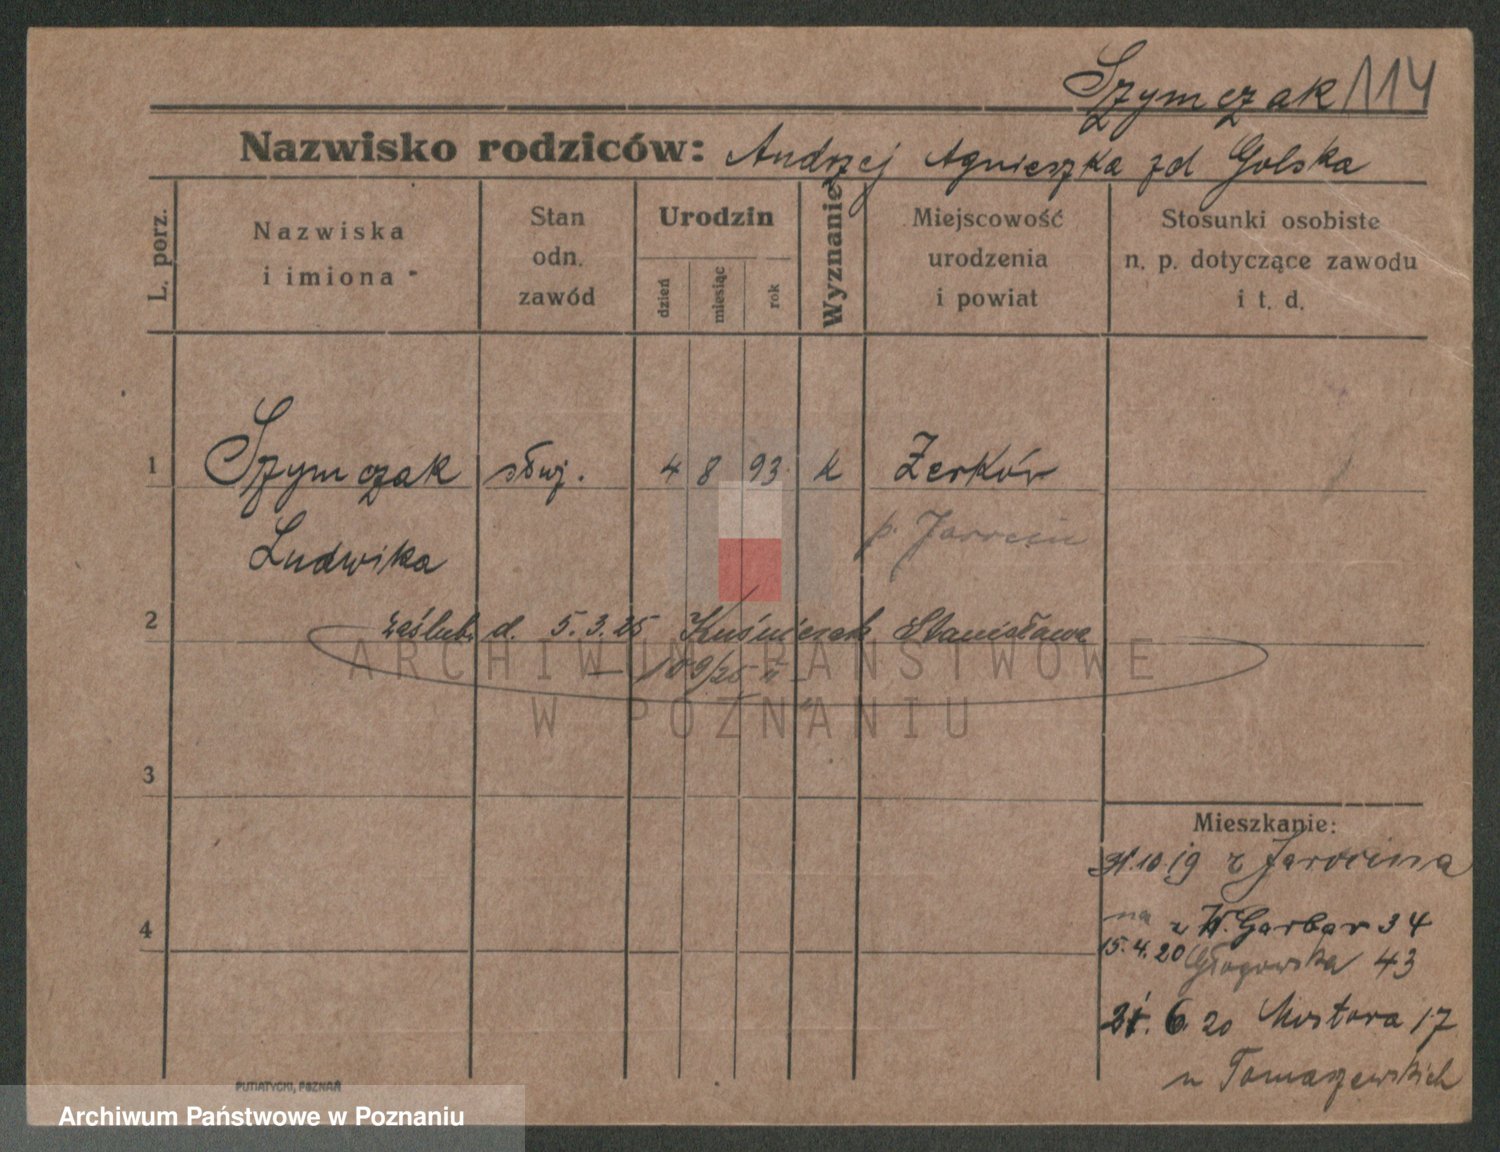 Szymczak 114
Nazwisko rodziców: Andrzej Agnieszka zd Golska
L. porz.
Nazwiska
i imiona
Stan
odn.
zawód
Urodzin
dzień
miesiąc
rok
Wyznanie
Miejscowość
urodzenia
i powiat
Stosunki osobiste
n. p. dotyczące zawodu
i t. d.
1 Szymczak służ. 4 8 93. k Żerków
Ludwika p. Jarocin
2 zaślub. d. 5.3.25 Kuśnierzak Stanisława
3
4
Mieszkanie:
10.19 z Jarocina
na W. Garbar 34
15.4.20 Głogowska 43
6 20 Mostowa 17
u Tomaszewskich
PUTIATYCKI, POZNAŃ
ARCHIWUM PAŃSTWOWE
W POZNANIU
Archiwum Państwowe w Poznaniu